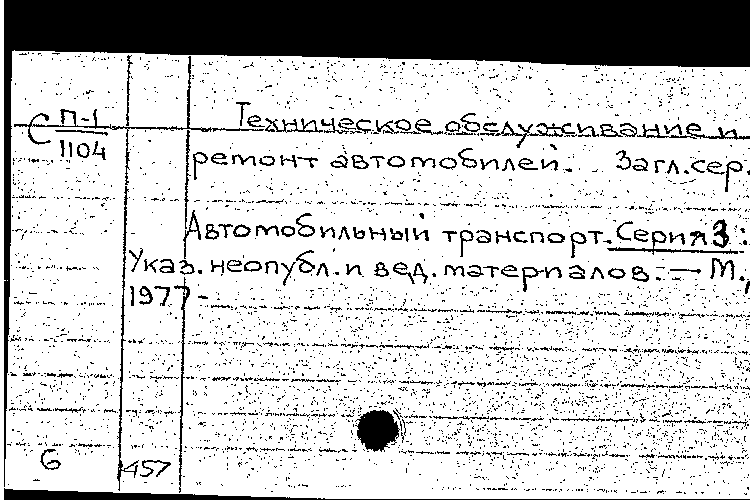 С П-1
1104
Техническое обслуживание и
ремонт автомобилей. Загл.сер.
Автомобильный транспорт. Серия 3 :
Указ. неопубл. и вед. материалов. — М.,
1977-
6
457